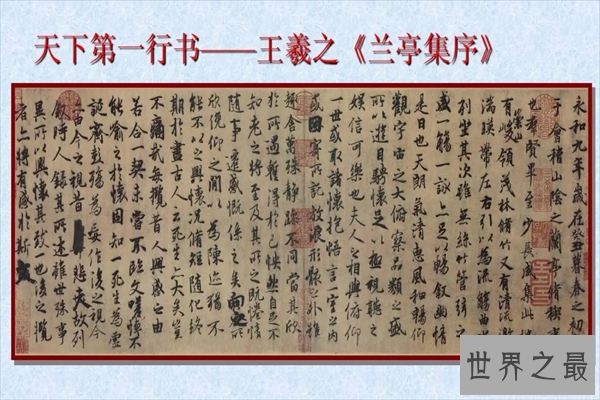 天下第一行书——王羲之《兰亭集序》
永和九年歲在癸丑暮春之初
于會稽山陰之蘭亭脩禊事
也羣賢畢至少長咸集此地
有崇山峻領茂林脩竹又有清流激
湍暎帶左右引以為流觴曲
列坐其次雖無絲竹管弦之
盛一觴一詠亦足以暢敘幽情
是日也天朗氣清惠風和暢仰
觀宇宙之大俯察品類之盛
所以遊目騁懷足以極視聽之
娛信可樂也夫人之相與俯仰
一世或取諸懷抱悟言一室之內
或因寄所託放浪形骸之外雖
趣舍萬殊靜躁不同當其欣
於所遇蹔得於己怏然自足不
知老之將至及其所之既惓情
隨事遷感慨係之矣向之所
欣俛仰之閒以為陳迹猶不
能不以之興懷況脩短隨化終
期於盡古人云死生亦大矣豈
不痛哉每攬昔人興感之由
若合一契未嘗不臨文嗟悼不
能喻之於懷固知一死生為虛
誕齊彭殤為妄作後之視今
亦由今之視昔悲夫故列
敘時人錄其所述雖世殊事
異所以興懷其致一也後之攬
者亦將有感於斯文
世界之最